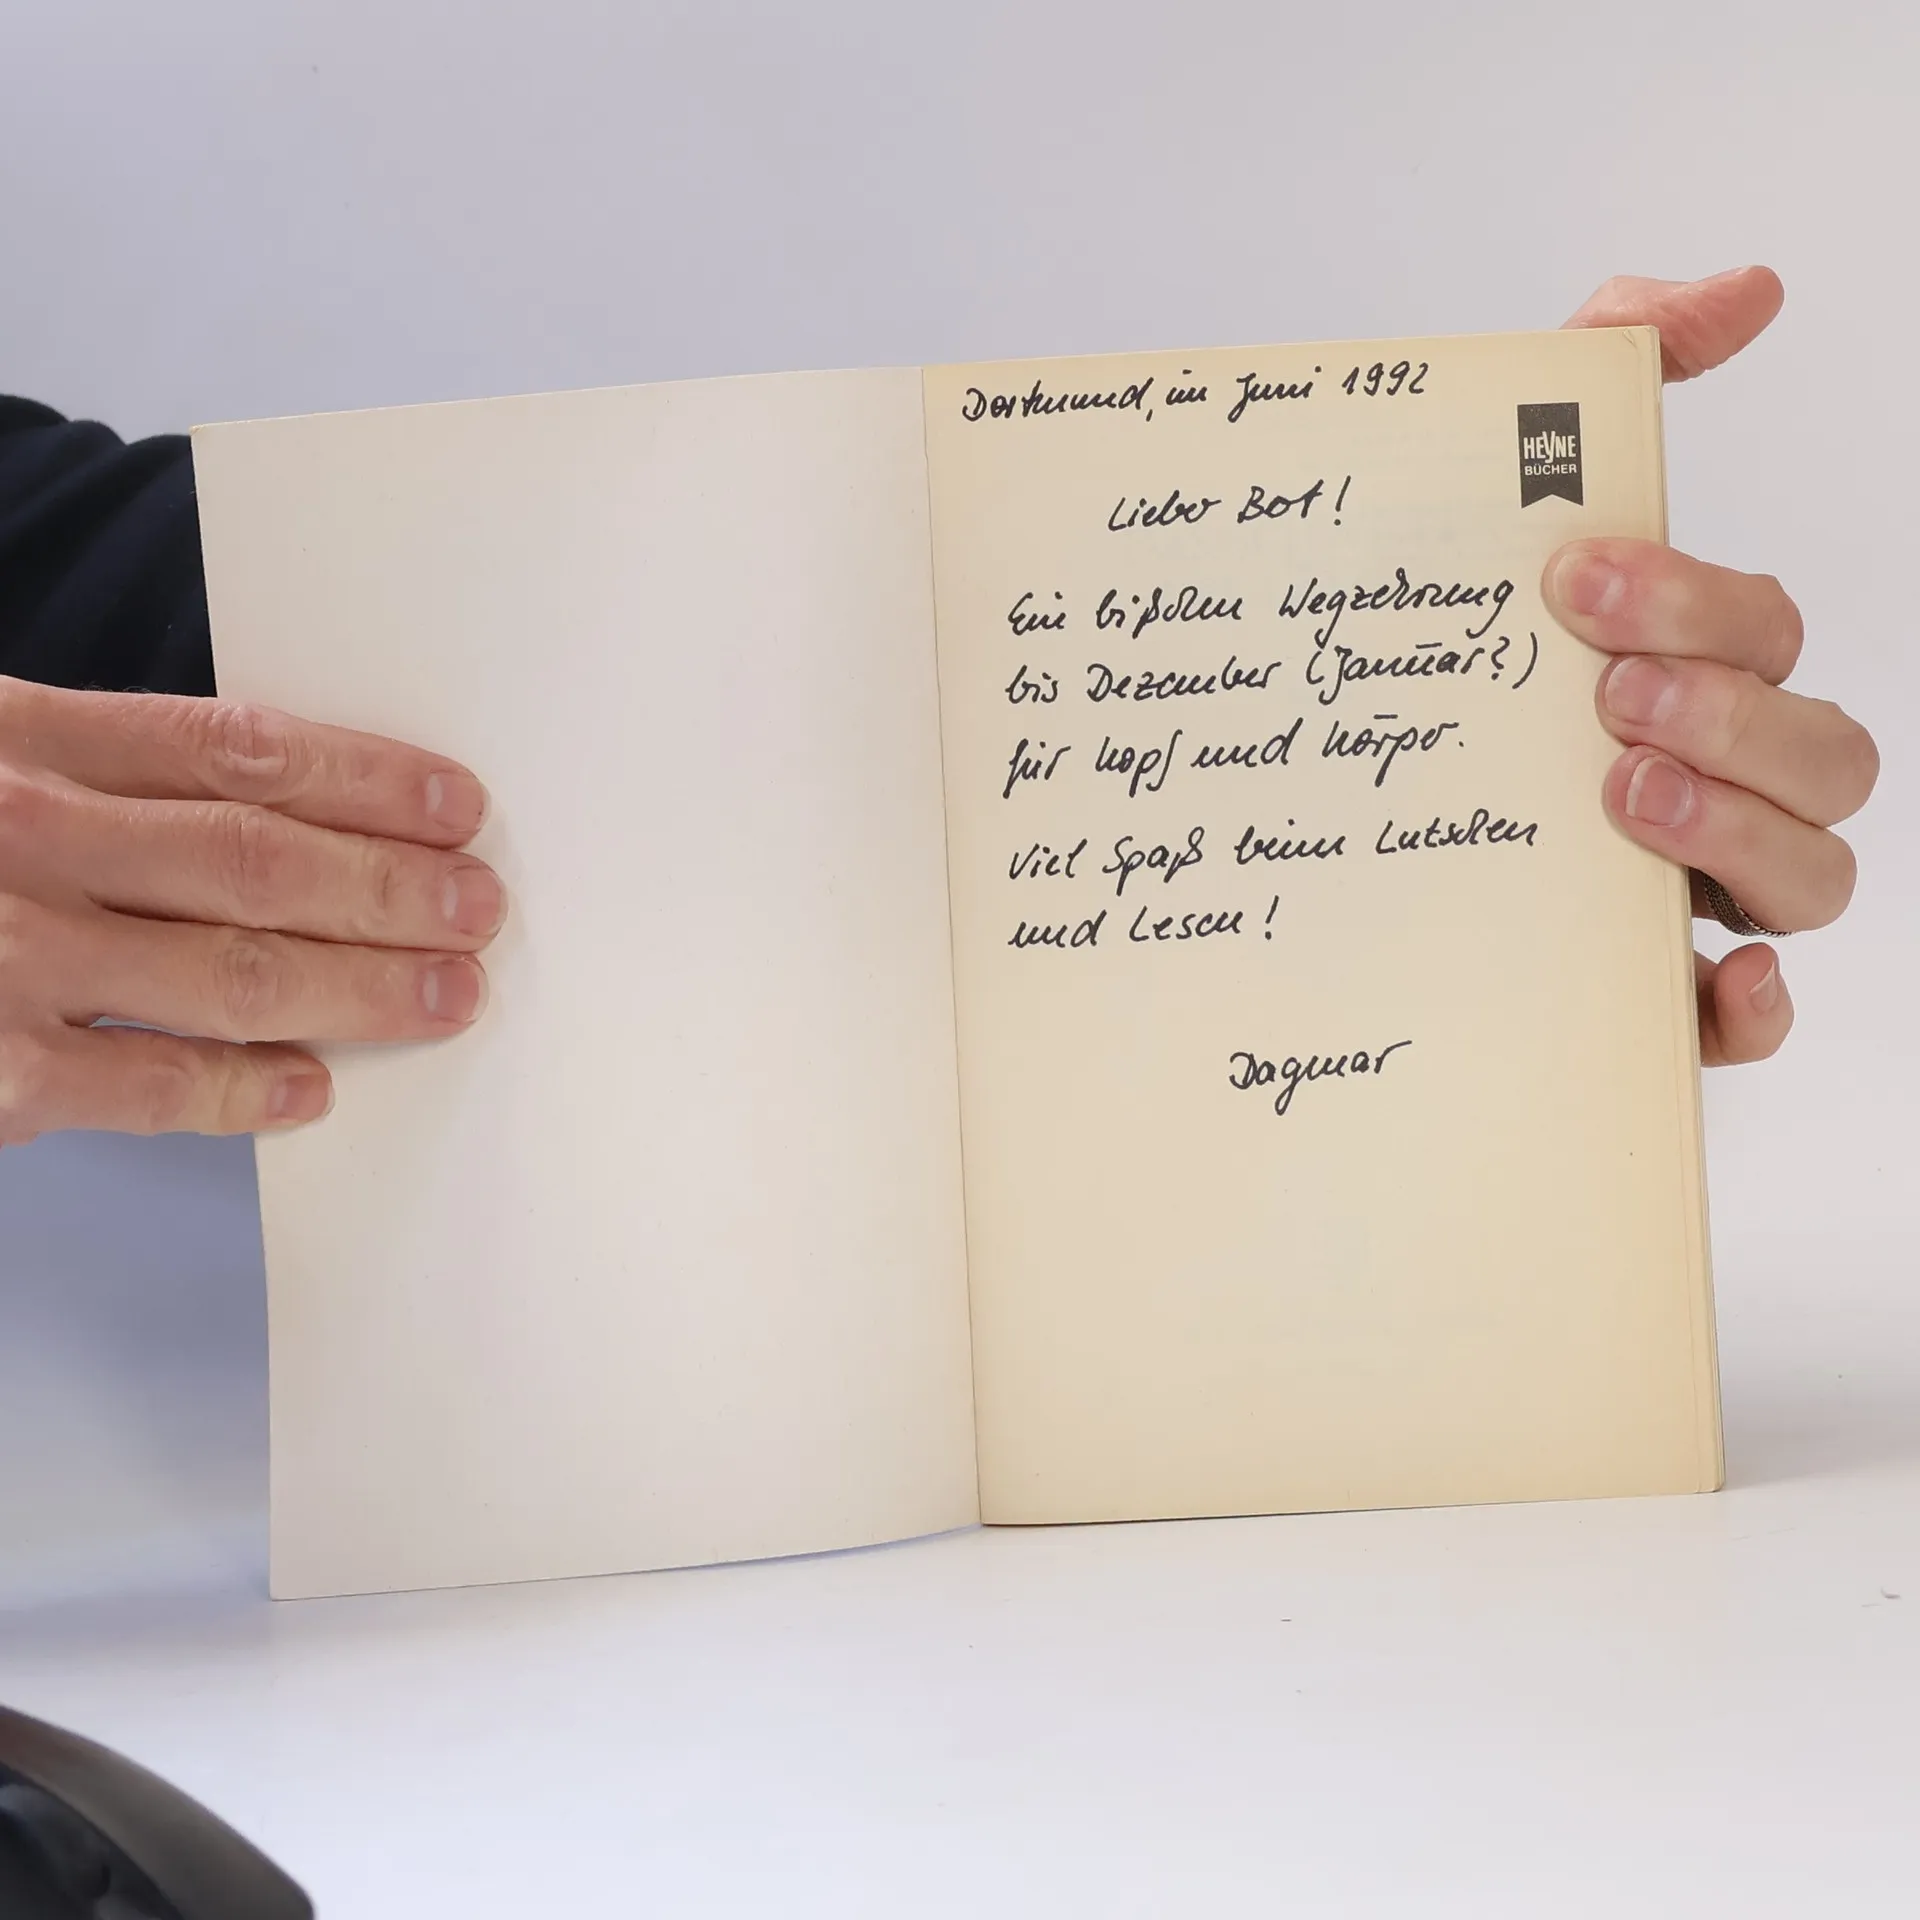 Dortmund, im Juni 1992
HEYNE
BÜCHER
Lieber Bot!
Ein bißchen Wegzehrung
bis Dezember (Januar?)
für Kopf und Körper.
Viel Spaß beim Lutschen
und Lesen!
Dagmar